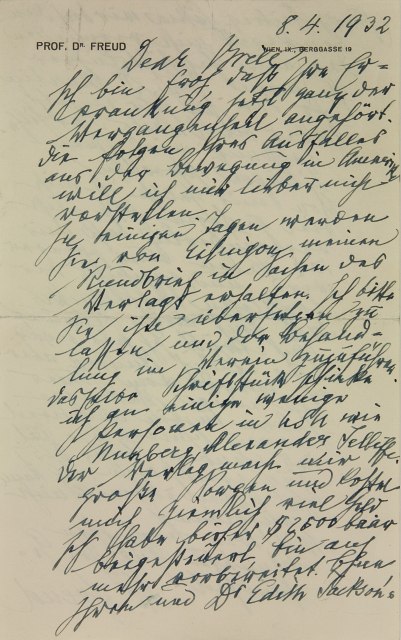 8. 4. 1932
PROF. DR. FREUD
WIEN, IX., BERGGASSE 19
Dear Brill
Ich bin froh daß Ihre Er-
krankung jetzt ganz der
Vergangenheit angehört.
Die Folgen Ihres Ausfalles
aus der Bewegung in Amerika
will ich mir lieber nicht
vorstellen.
In einigen Tagen werden
Sie von Eitingon meinen
Rundbrief in Sachen des
Verlags erhalten. Ich bitte
Sie ihn übertragen zu
lassen und der Behand-
lung im Verein zuzuführen.
dasselbe Schriftstück schicke
ich an einige wenige
Personen in USA wie
Alexander Jelliffe.
der Verlag macht mir
große Sorgen und kostet
mich ziemlich viel Geld
Ich habe bisher $ 2500 baar
beigesteuert, bin auf
mehr vorbereitet. Ohne
Ihren und Dr Edith Jackson's